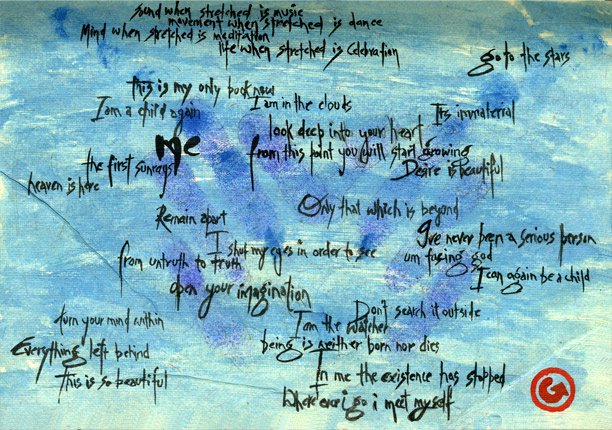 Sound when stretched is music
movement when stretched is dance
Mind when stretched is meditation
life when stretched is Celebration
go to the stars
this is my only book now
I am a child again
I am in the clouds
It's immaterial
look deep into your heart
me
from this point you will start growing
the first sunrays
Desire is beautiful
heaven is here
Remain apart
Only that which is beyond
I shut my eyes in order to see
I've never been a serious person
from untruth to truth
um fucing god
I can again be a child
open your imagination
Don't search it outside
turn your mind within
I am the watcher
Everything left behind
being is neither born nor dies
This is so beautiful
In me the existence has stopped
Where ever i go i meet myself